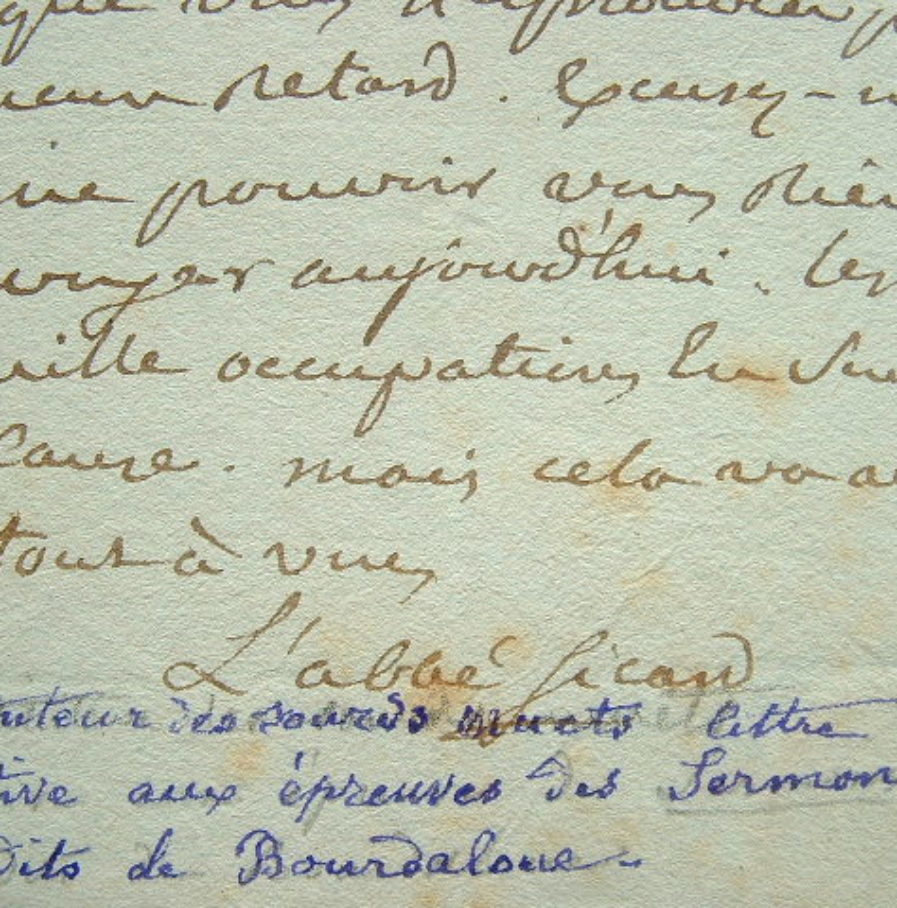 que vous d'éprouver
retard. Excusez-
pouvoir vous rien
aujourd'hui. Les
mille occupations En sont
cause. mais cela va
tout à vous
L'abbé Sicard
tuteur des sourds muets lettre
tive aux épreuves des Sermon
dits de Bourdaloue-